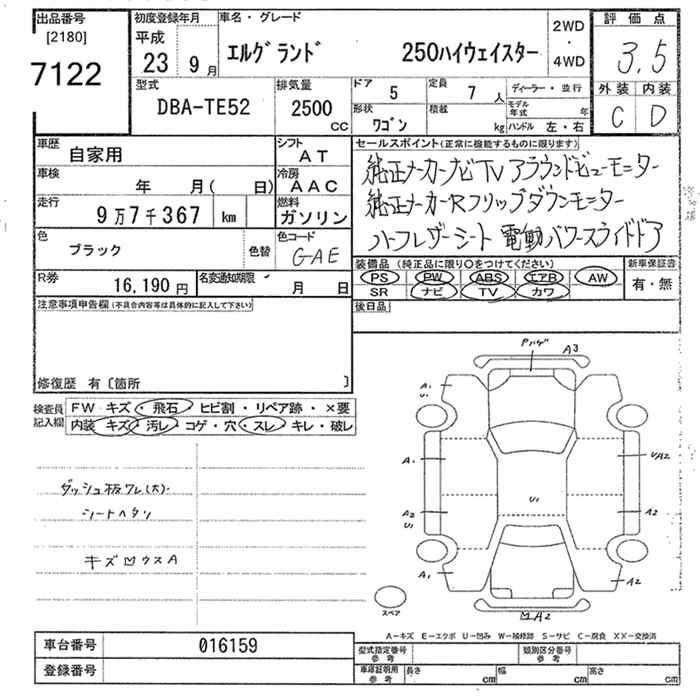 出品番号
[2180]
7122
初度登録年月
平成
23年 9月
車名・グレード
エルグランド 250ハイウェイスター
2WD
・
4WD
評価点
3.5
外装 内装
C D
型式
DBA-TE52
排気量
2500
CC
ドア 5
定員 7人
形状 ワゴン
積載 kg
ディーラー・並行
モデル年式 年
ハンドル 左・右
車歴 自家用
シフト AT
車検 年 月( 日)
冷房 AAC
走行 9万7千367 km
燃料 ガソリン
色 ブラック 色替
色コード GAE
R券 16,190円
名変通知期限 月 日
セールスポイント(正常に機能するものに限ります)
純正メーカーナビTV アラウンドビューモニター
純正メーカーRフリップダウンモニター
ハーフレザーシート 電動パワースライドドア
装備品(純正品に限り○をつけてください)
PS PW ABS エアB AW
SR ナビ TV カワ
新車保証書
有・無
後日品
注意事項申告欄(不具合内容等は具体的に記入して下さい)
修復歴 有〔箇所 〕
検査員記入欄
FW キズ・飛石・ヒビ割・リペア跡・×要
内装 キズ・汚レ・コゲ・穴・スレ・キレ・破レ
ダッシュ板ワレ(大)
シートヘタリ
キズ凹ウスA
Pハゲ
A3
A1
U1
A1
UA2
A2
U1
U1
A2
A1
A2
凹A2
スペア
A-キズ E-エクボ U-凹み W-補修跡 S-サビ C-腐食 XX-交換済
車台番号 016159
登録番号
型式指定番号
参考
類別区分番号
参考
車庫証明用
参考
長さ cm
幅 cm
高さ cm